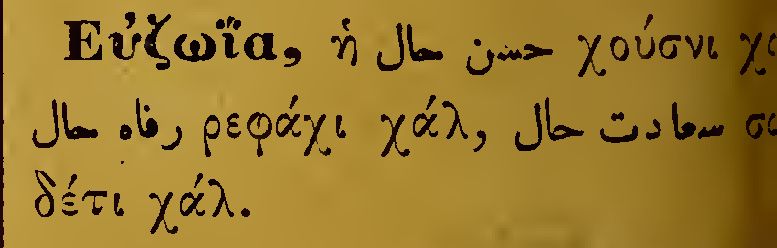 Εὐζωΐα, ἡ حسن حال χούσνι
رفاه حال ρεφάχι χάλ, سعادت حال
δέτι χάλ.